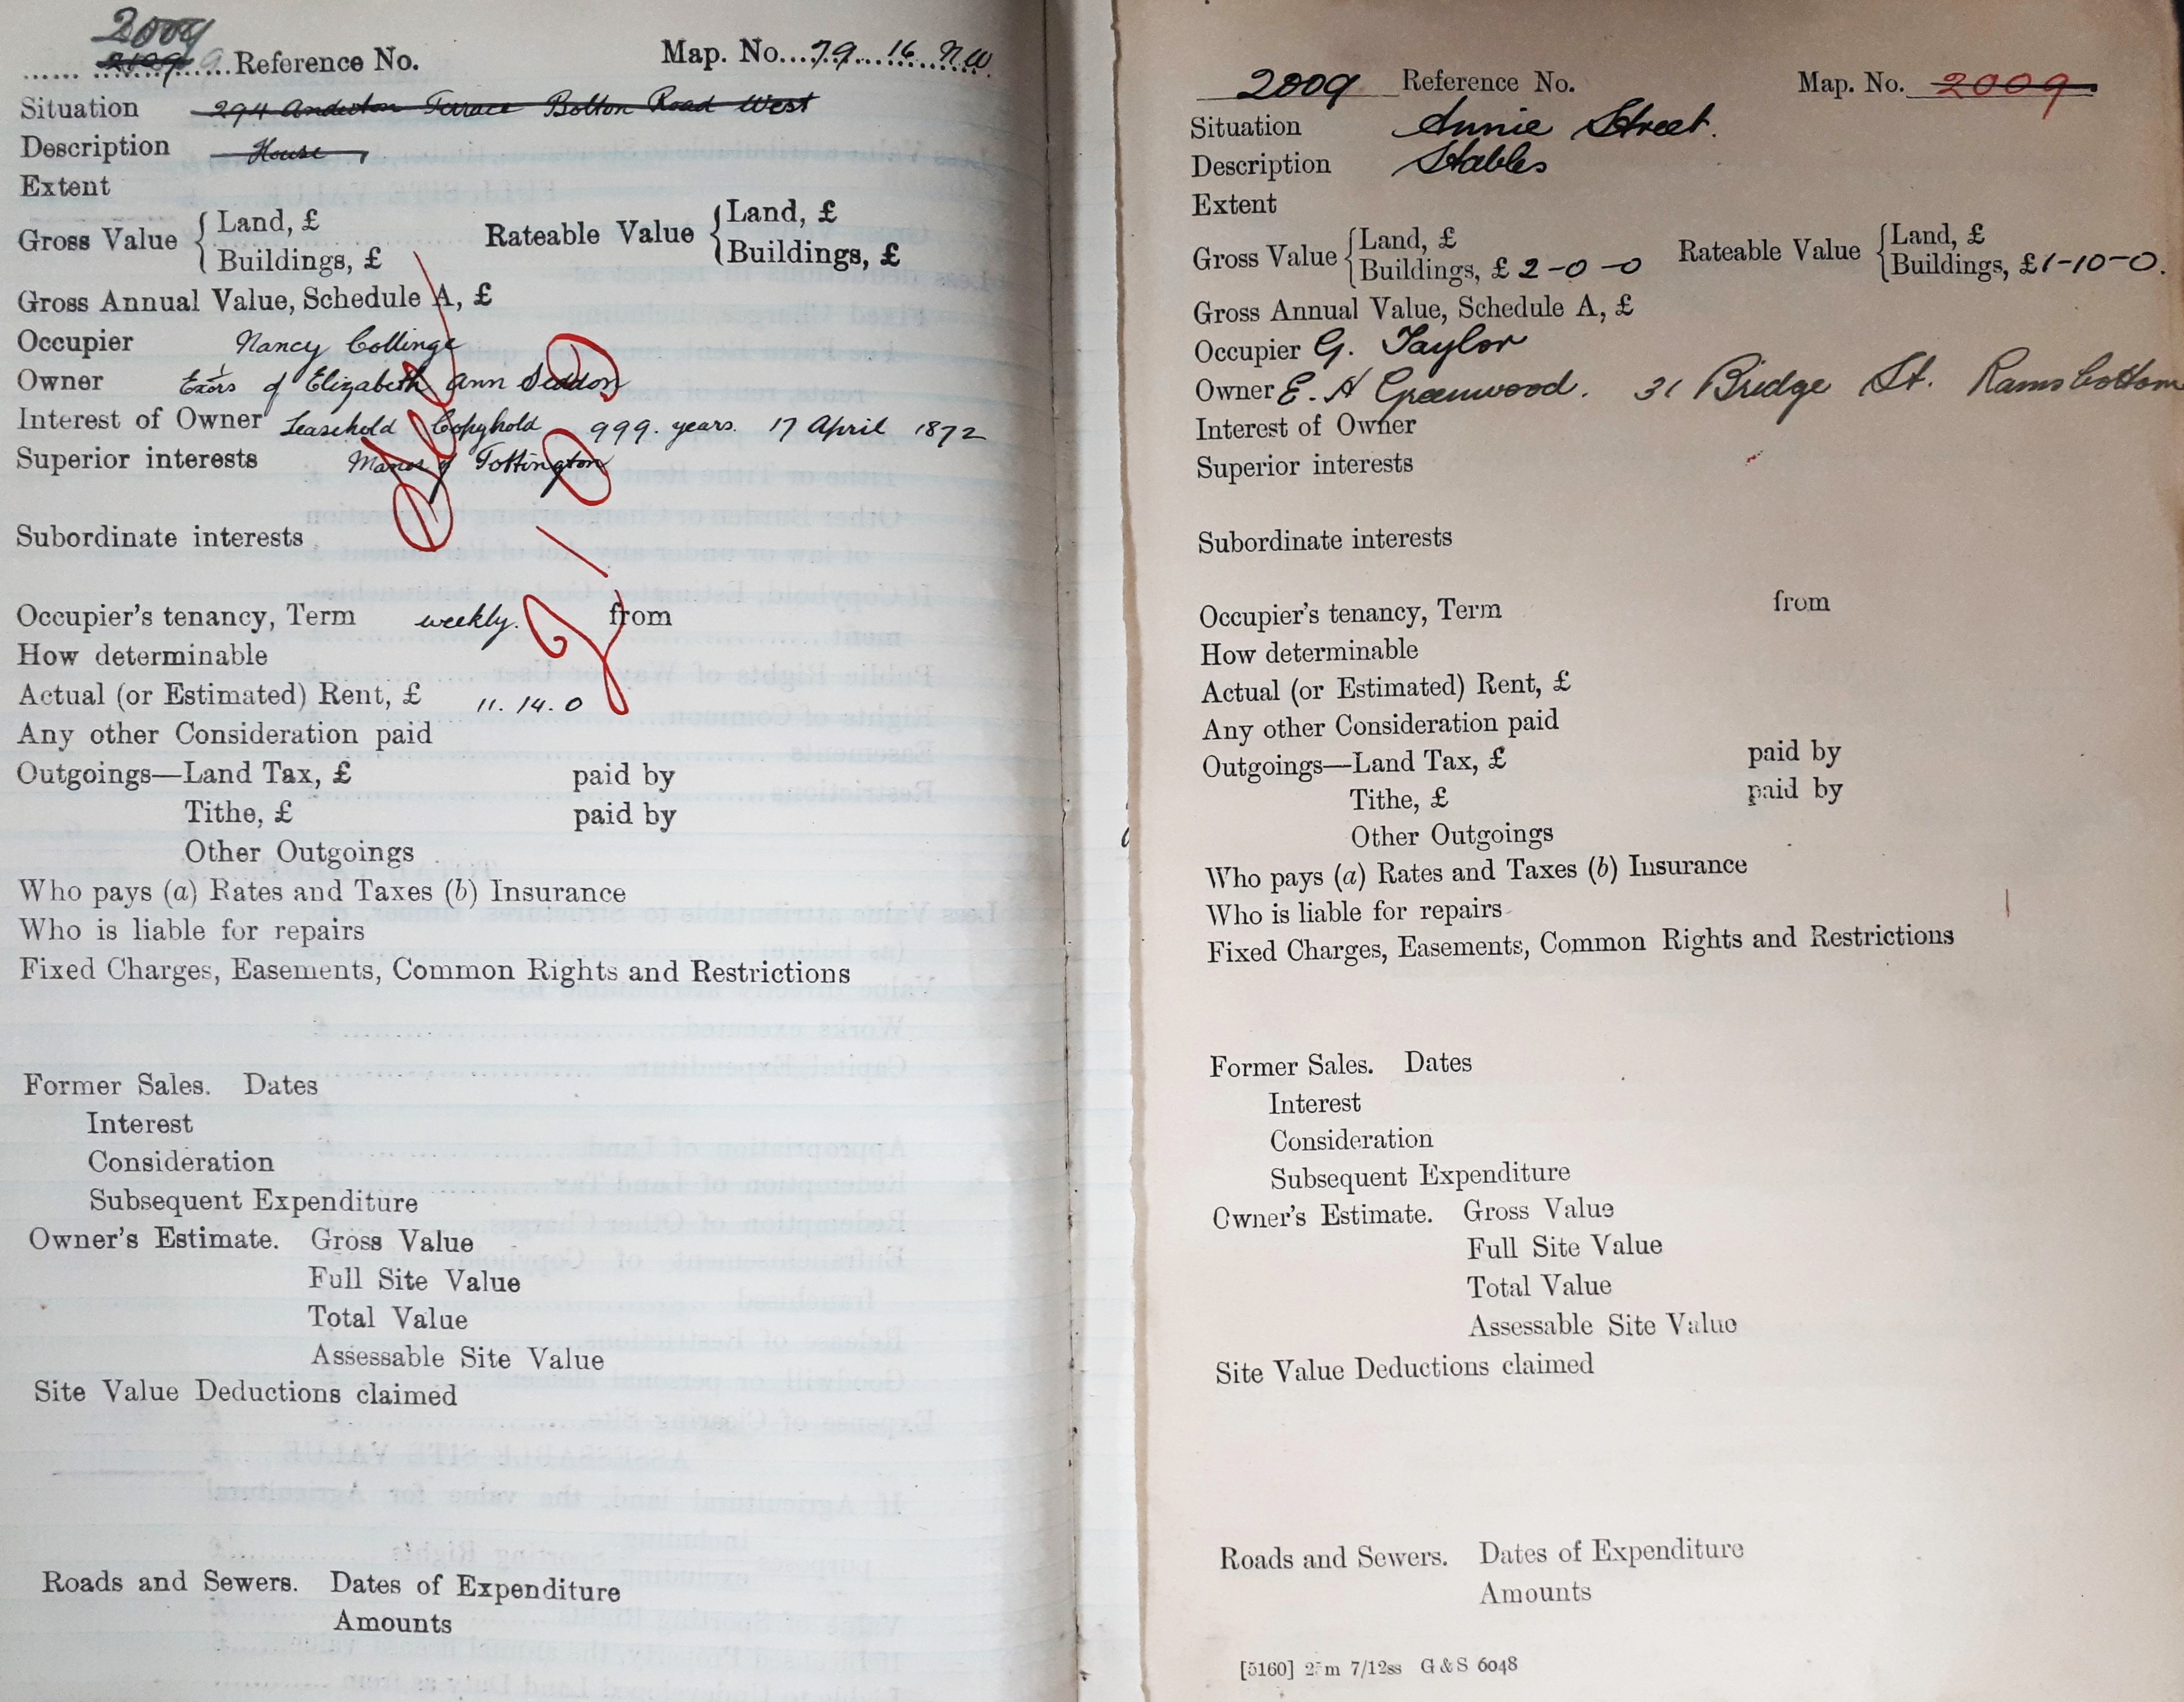 2009
2109 9 Reference No. Map. No. 79 16 N.W.
Situation 294 Anderton Terrace Bolton Road West
Description House
Extent
Gross Value { Land, £ Rateable Value { Land, £
Buildings, £ Buildings, £
Gross Annual Value, Schedule A, £
Occupier Nancy Collinge
Owner Exors of Elizabeth Ann Seddon
Interest of Owner Leasehold Copyhold 999. years. 17 April 1872
Superior interests Manor of Tottington
Subordinate interests
Occupier's tenancy, Term weekly. from
How determinable
Actual (or Estimated) Rent, £ 11. 14. 0
Any other Consideration paid
Outgoings—Land Tax, £ paid by
Tithe, £ paid by
Other Outgoings
Who pays (a) Rates and Taxes (b) Insurance
Who is liable for repairs
Fixed Charges, Easements, Common Rights and Restrictions
Former Sales. Dates
Interest
Consideration
Subsequent Expenditure
Owner's Estimate. Gross Value
Full Site Value
Total Value
Assessable Site Value
Site Value Deductions claimed
Roads and Sewers. Dates of Expenditure
Amounts
2009 Reference No. Map. No. 2009
Situation Annie Street.
Description Stables
Extent
Gross Value { Land, £ Rateable Value { Land, £
Buildings, £ 2-0-0 Buildings, £1-10-0.
Gross Annual Value, Schedule A, £
Occupier G. Taylor
Owner E. H Greenwood. 31 Bridge St. Ramsbottom
Interest of Owner
Superior interests
Subordinate interests
Occupier's tenancy, Term from
How determinable
Actual (or Estimated) Rent, £
Any other Consideration paid
Outgoings—Land Tax, £ paid by
Tithe, £ paid by
Other Outgoings
Who pays (a) Rates and Taxes (b) Insurance
Who is liable for repairs
Fixed Charges, Easements, Common Rights and Restrictions
Former Sales. Dates
Interest
Consideration
Subsequent Expenditure
Owner's Estimate. Gross Value
Full Site Value
Total Value
Assessable Site Value
Site Value Deductions claimed
Roads and Sewers. Dates of Expenditure
Amounts
[5160] 25m 7/12ss G & S 6048